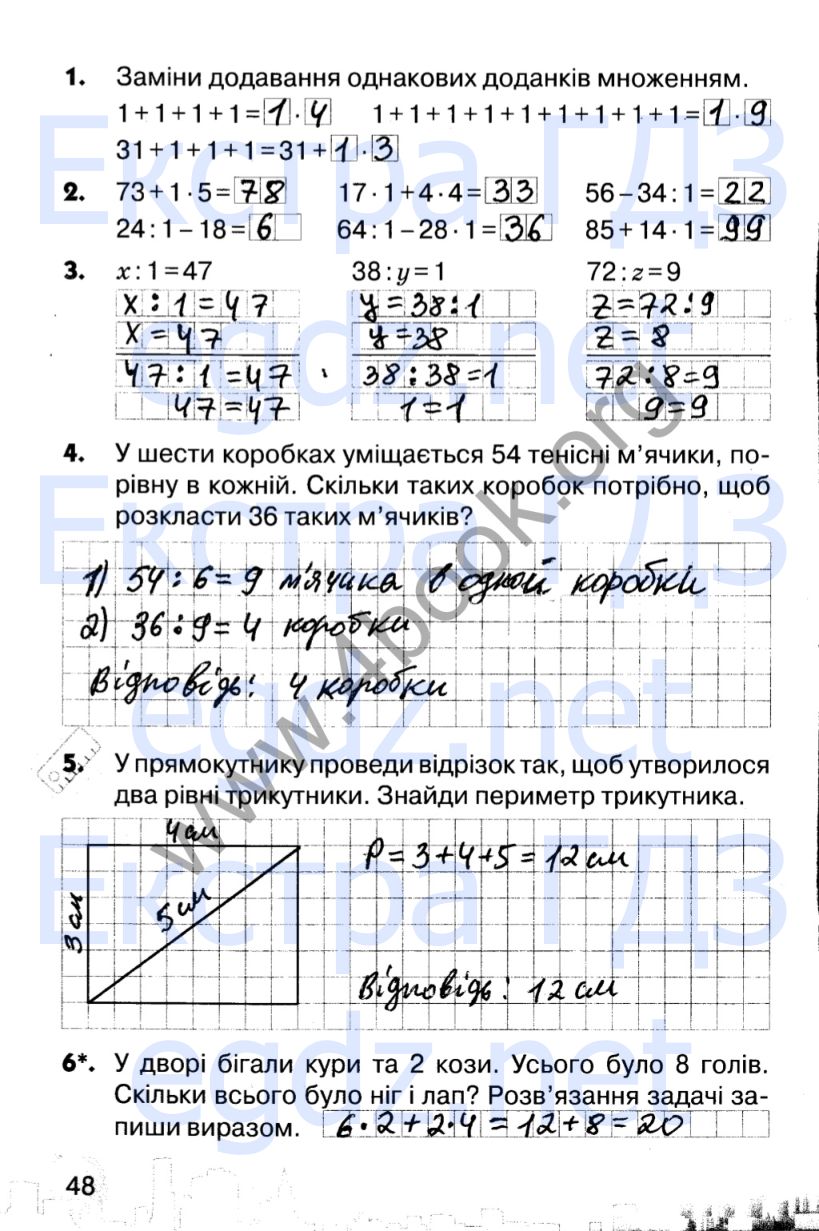 1. Заміни додавання однакових доданків множенням.
1+1+1+1=1·4 1+1+1+1+1+1+1+1+1=1·9
31+1+1+1=31+1·3
2. 73+1·5=78 17·1+4·4=33 56–34:1=22
24:1–18=6 64:1–28·1=36 85+14·1=99
3. x:1=47 38:y=1 72:z=9
x:1=47 y=38:1 z=72:9
x=47 y=38 z=8
47:1=47 38:38=1 72:8=9
47=47 1=1 9=9
4. У шести коробках уміщається 54 тенісні м’ячики, по-
рівну в кожній. Скільки таких коробок потрібно, щоб
розкласти 36 таких м’ячиків?
1) 54:6=9 м'ячика в одной коробки
2) 36:9=4 коробки
Відповідь: 4 коробки
5. У прямокутнику проведи відрізок так, щоб утворилося
два рівні трикутники. Знайди периметр трикутника.
4 см
P=3+4+5=12 см
5 см
3 см
Відповідь: 12 см
6*. У дворі бігали кури та 2 кози. Усього було 8 голів.
Скільки всього було ніг і лап? Розв’язання задачі за-
пиши виразом. 6·2+2·4=12+8=20
48
Екстра ГДЗ
egdz.net
Екстра ГДЗ
egdz.net
Екстра ГДЗ
egdz.net
www.4book.org